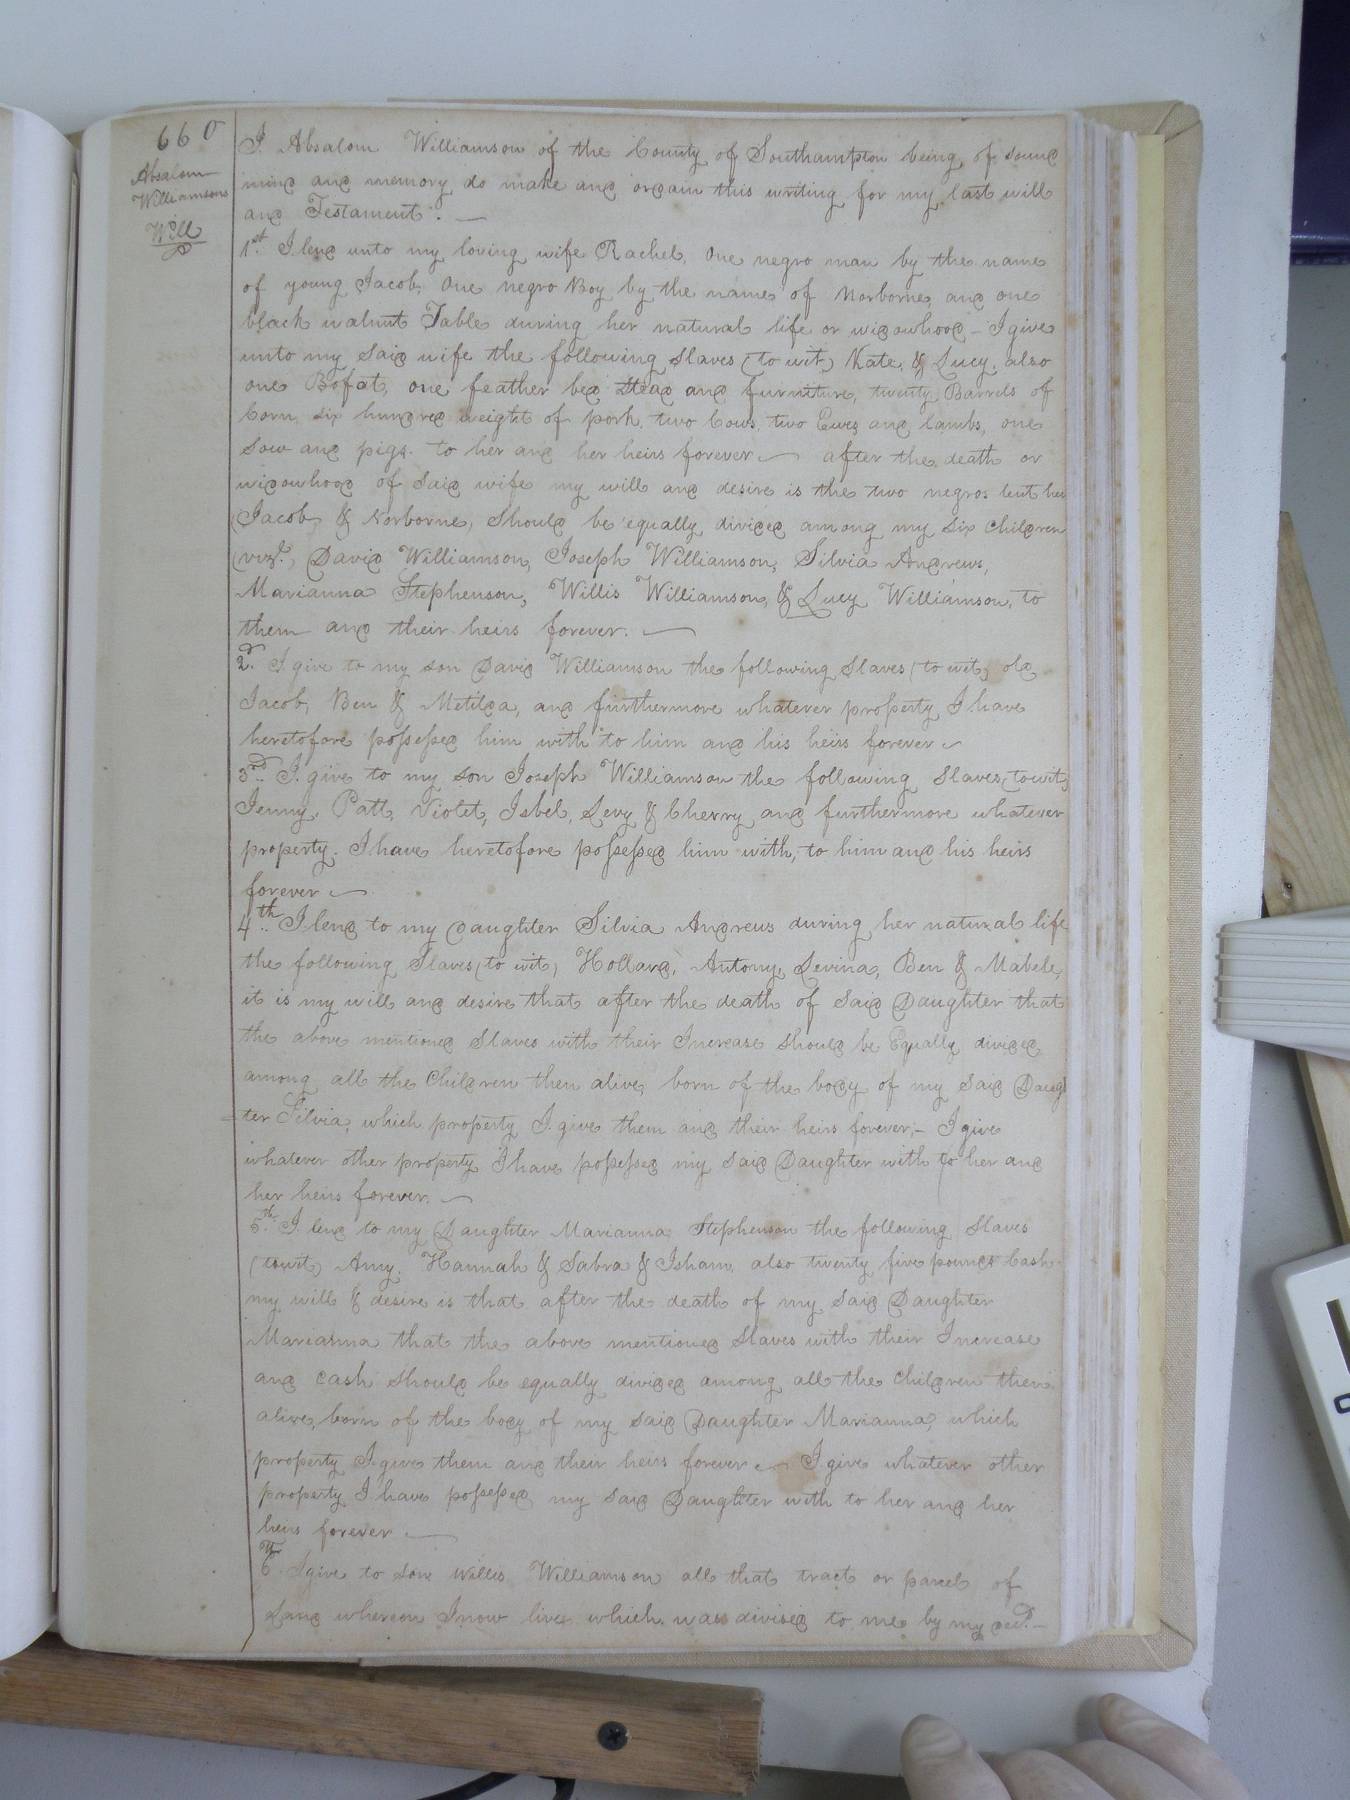 660
Absalom
Williamsons
Will
I. Absalom Williamson of the County of Southampton being of sound
mind and memory do make and ordain this writing for my last will
and Testament. —
1st. I lend unto my loving wife Rachel, One negro man by the name
of young Jacob, One negro Boy by the name of Norborne, and one
black walnut Table during her natural life or widowhood – I give
unto my said wife the following Slaves (to wit) Kate, & Lucy, also
one Bofat, one feather bed Stead and furniture, twenty Barrels of
Corn, six hundred weight of pork, two Cows, two Ewes and lambs, one
Sow and pigs. to her and her heirs forever — after the death or
widowhood of said wife my will and desire is the two negros lent her
Jacob, & Norborne, Should be equally divided among my six Children
(vizt., David Williamson, Joseph Williamson, Silvia Andrews,
Marianna Stephenson, Willis Williamson, & Lucy Williamson, to
them and their heirs forever. —
2d. I give to my son David Williamson the following Slaves (to wit) old
Jacob, Ben & Metilda, and furthermore whatever property I have
heretofore possessed him with to him and his heirs forever –
3rd. I. give to my son Joseph Williamson the following Slaves (towit)
Jenny, Patt, Violet, Isbel, Levy & Cherry and furthermore whatever
property. I have heretofore possessed him with, to him and his heirs
forever —
4th. I lend to my Daughter Silvia Andrews during her natural life
the following Slaves (to wit) Hollard, Antony, Levina, Ben & Mabele,
it is my will and desire that after the death of said Daughter that
the above mentioned Slaves with their Increase should be Equally divided
among all the Children then alive, born of the body of my said Daugh
=ter Silvia, which property I. give them and their heirs forever, – I give
whatever other property I have possessed my said Daughter with to her and
her heirs forever. —
5th. I lend to my Daughter Marianna Stephenson the following Slaves
(towit) Amy, Hannah & Sabra & Isham, also twenty five pounds Cash
my will & desire is that after the death of my said Daughter
Marianna that the above mentioned Slaves with their Increase
and Cash Should be equally divided among all the Children then
alive, born of the body of my said Daughter Marianna, which
property I give them and their heirs forever — I give whatever other
property I have possessed my said Daughter with to her and her
heirs forever —
6th. I give to son Willis Williamson all that tract or parcel of
Land whereon I now live which was divised to me by my